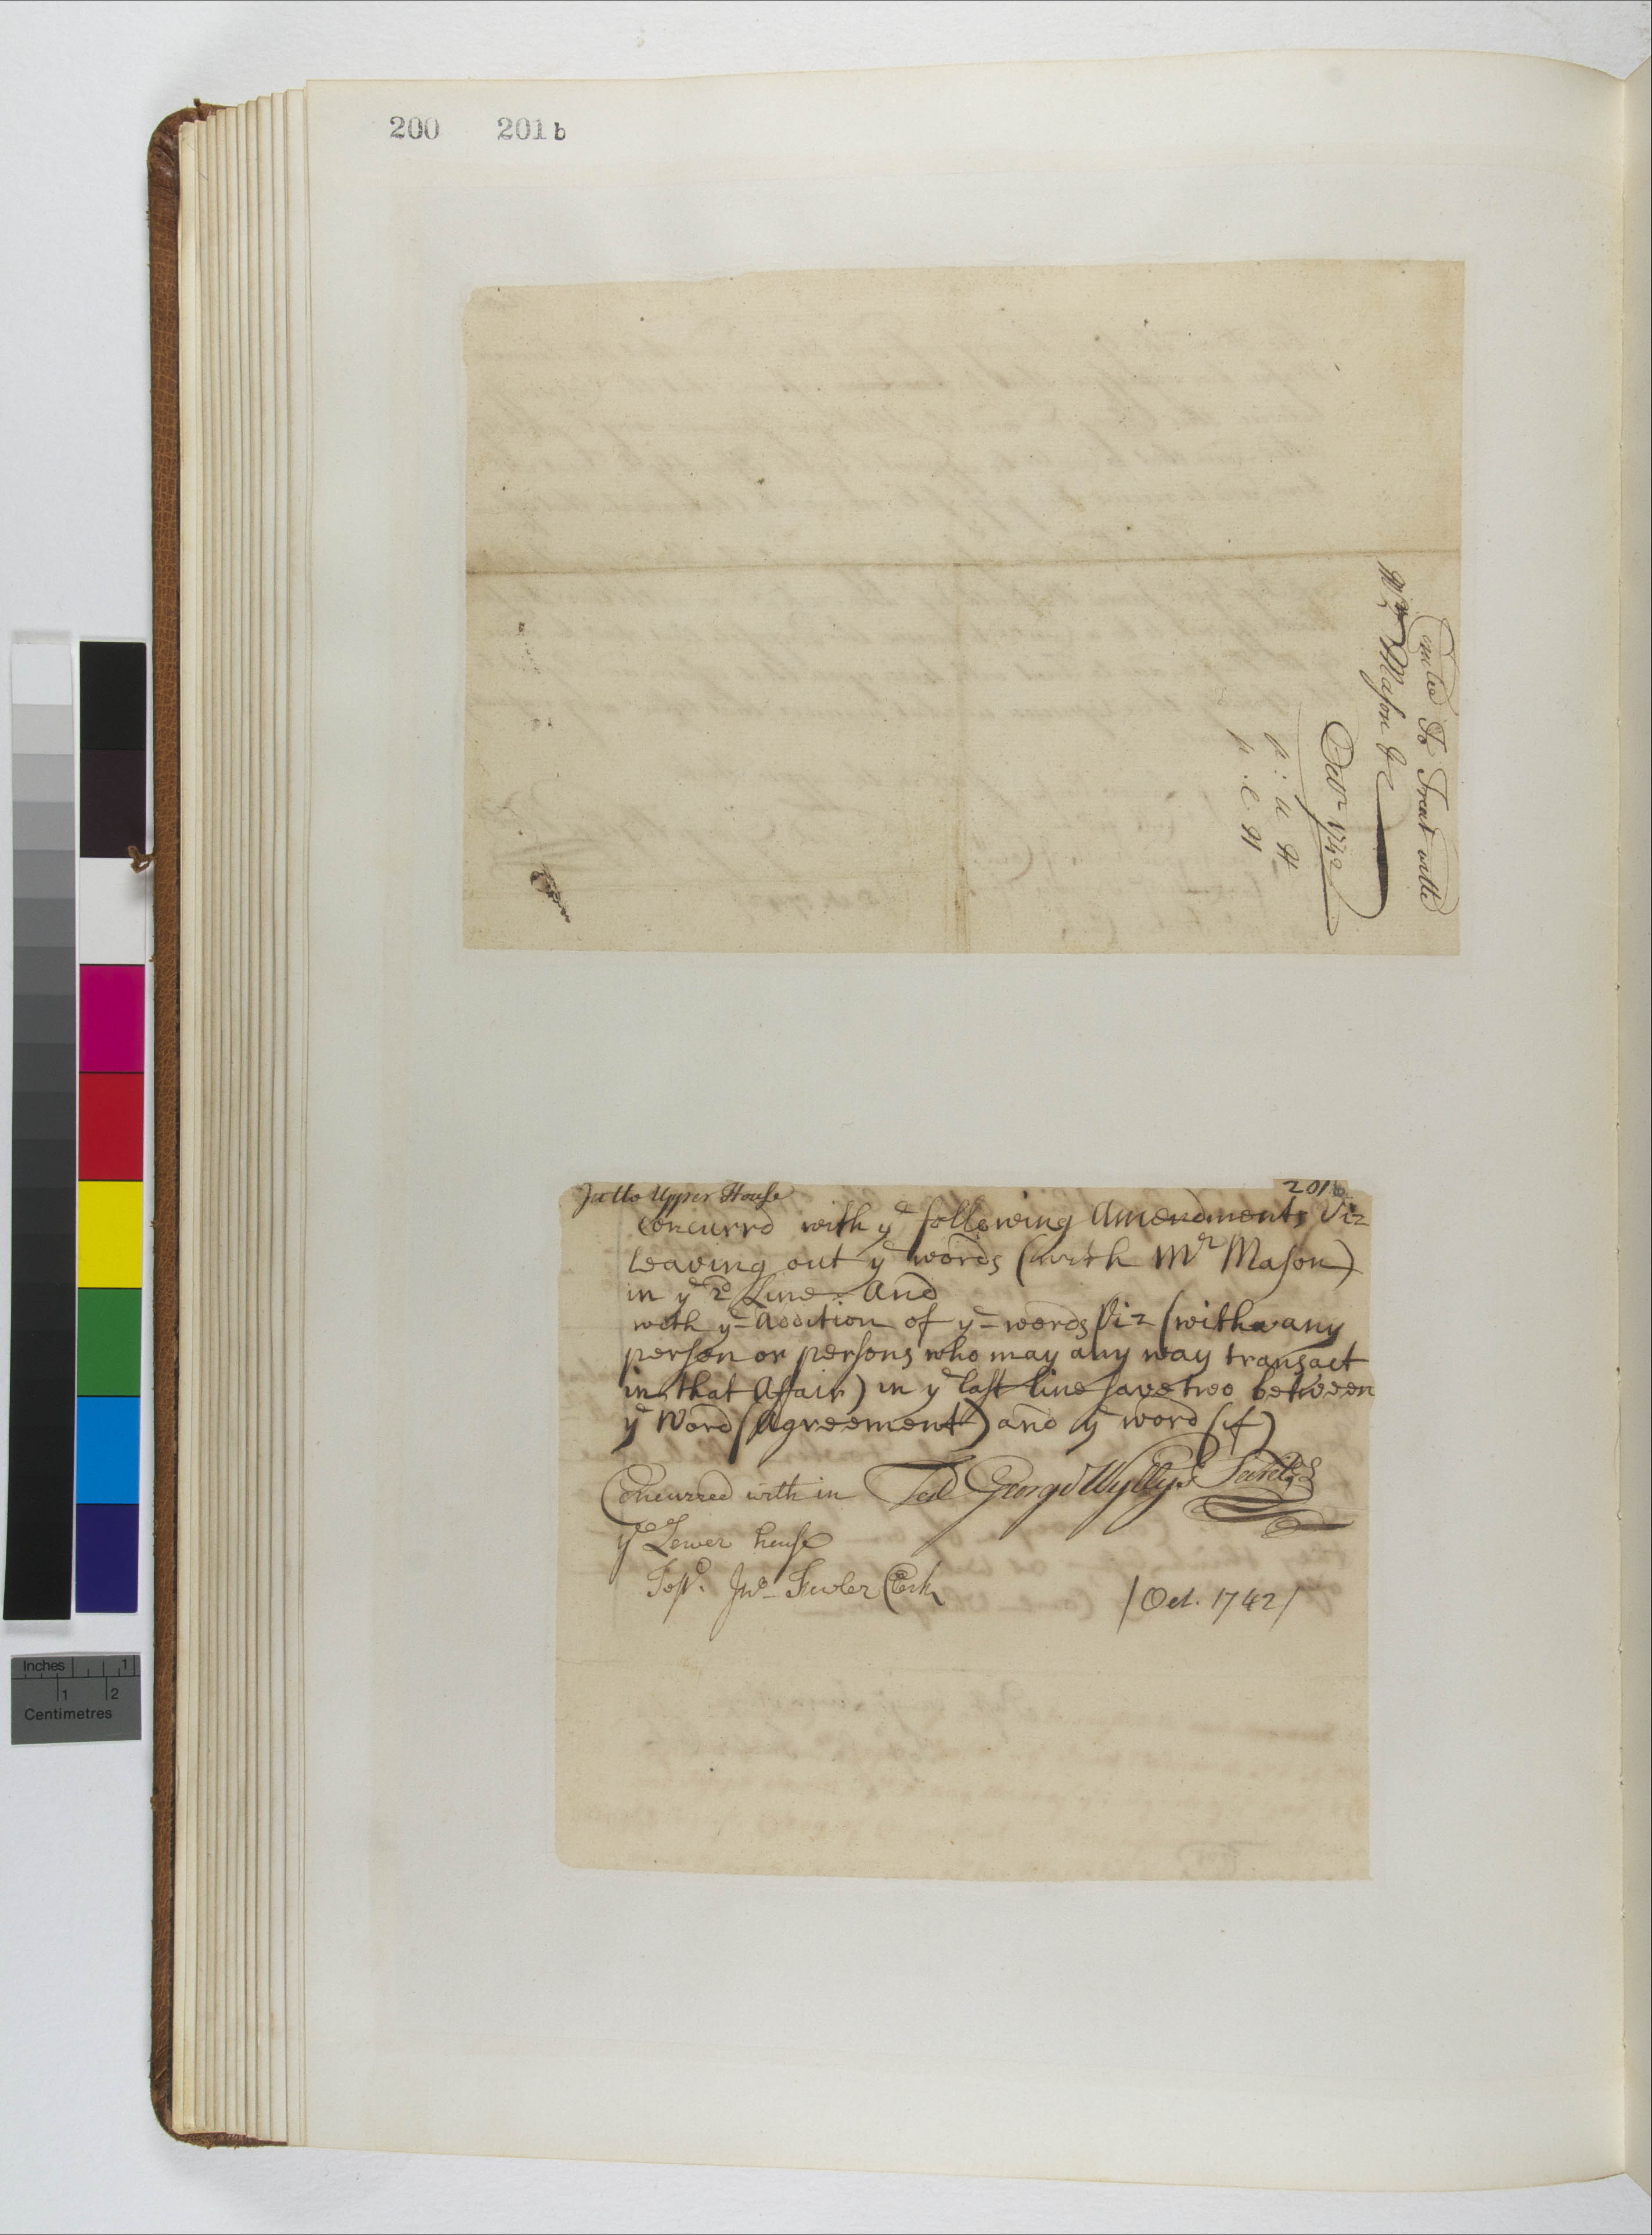 200 201b
Comtee To Treat with
Mr Mason &
Octr 1742
p : U H
p . L . H
201b
In the Upper House
Concurrd with ye following Amendments Viz
Leaving out ye words (with Mr Mason)
in ye 2d Line And
with ye Addition of ye words Viz (with any
person or persons who may any way transact
in that Affair) in ye last line save two between
ye Word (Agreement) and ye word (if)
Concurred with in Test George Wyllys Secrety
ye Lower house
Test. Jno Fowler Clerk
/Oct. 1742/
Inches 1
1 2
Centimetres